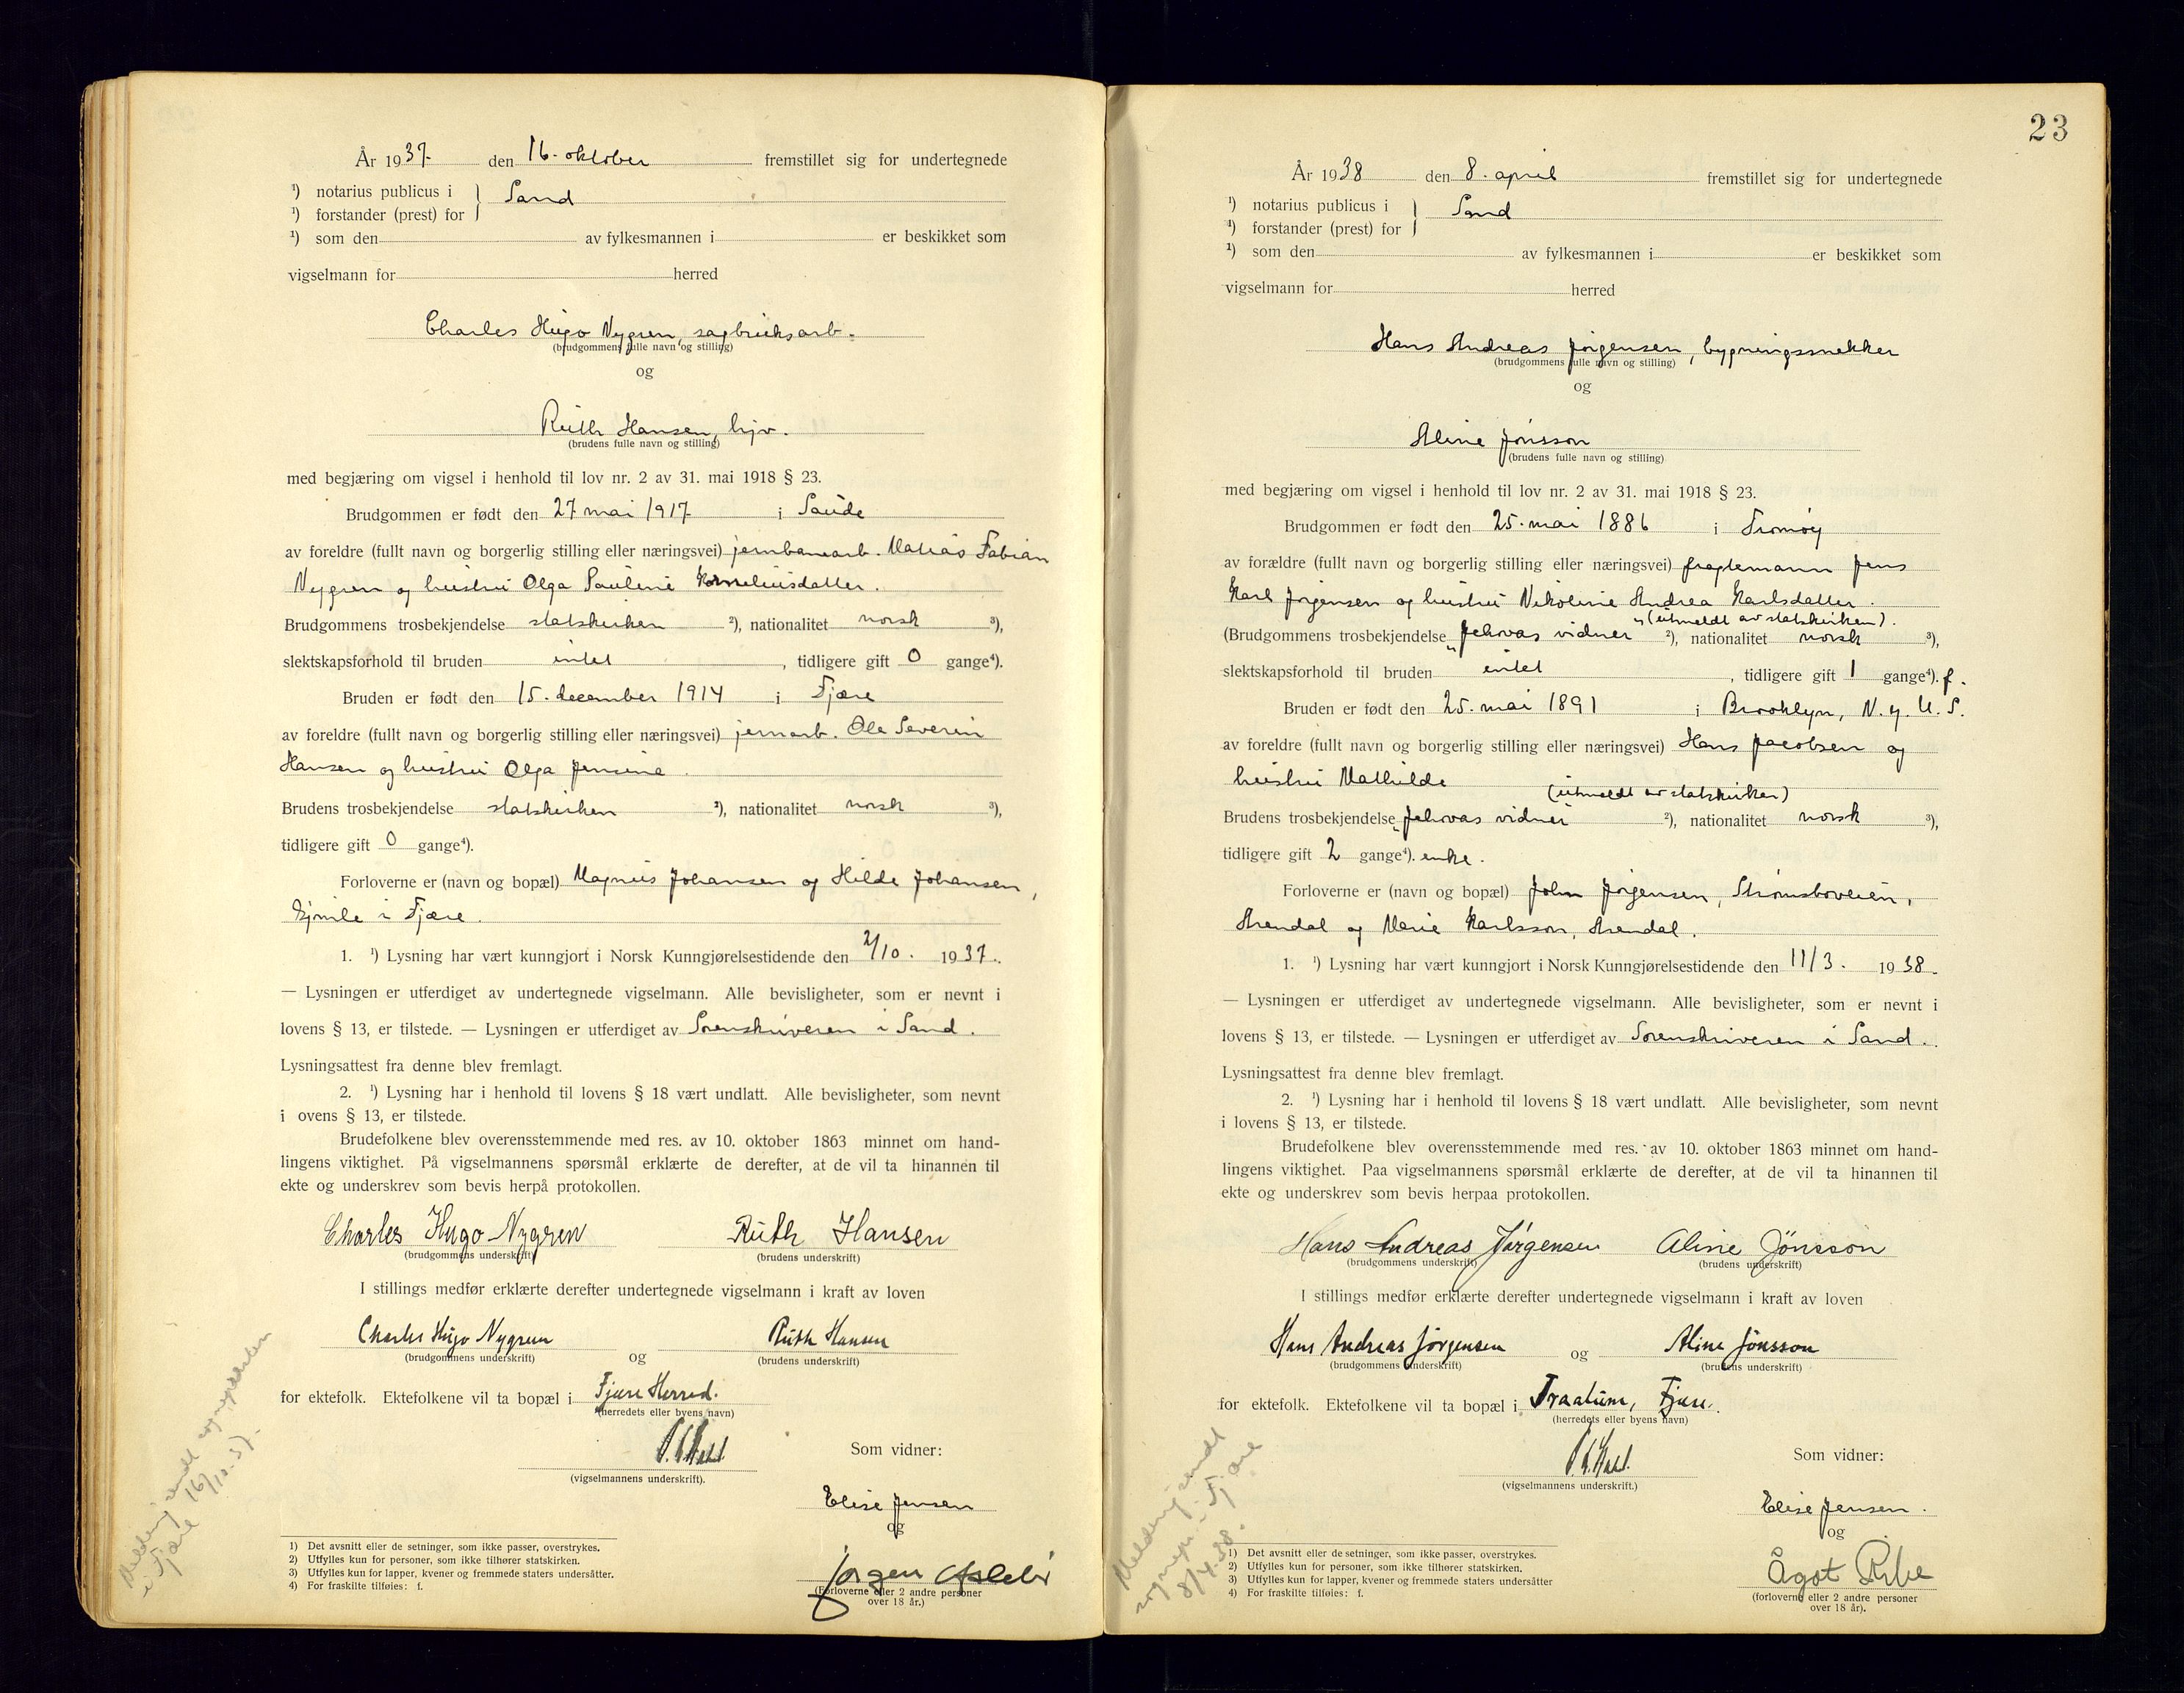 År 1937. den 16. oktober fremstillet sig for undertegnede
¹) notarius publicus i
¹) forstander (prest) for } Sand
¹) som den av fylkesmannen i er beskikket som
vigselmann for herred
Charles Hugo Nygren, sagbruksarb.
(brudgommens fulle navn og stilling)
og
Ruth Hansen, hjv.
(brudens fulle navn og stilling)
med begjæring om vigsel i henhold til lov nr. 2 av 31. mai 1918 § 23.
Brudgommen er født den 27 mai 1917 i Saude
av foreldre (fullt navn og borgerlig stilling eller næringsvei) jernbanearb. Matias Fabian
Nygren og hustru Olga Pauline Korneliusdatter.
Brudgommens trosbekjendelse statskirken ²), nationalitet norsk ³),
slektskapsforhold til bruden intet , tidligere gift 0 gange⁴).
Bruden er født den 15. december 1914 i Fjære
av foreldre (fullt navn og borgerlig stilling eller næringsvei) jernarb. Ole Severin
Hansen og hustru Olga Jensine.
Brudens trosbekjendelse statskirken ²), nationalitet norsk ³),
tidligere gift 0 gange⁴).
Forloverne er (navn og bopæl) Magnus Johansen og Hilde Johansen,
i Fjære.
1. ¹) Lysning har vært kunngjort i Norsk Kunngjørelsestidende den 2/10. 1937.
— Lysningen er utferdiget av undertegnede vigselmann. Alle bevisligheter, som er nevnt i
lovens § 13, er tilstede. — Lysningen er utferdiget av Sorenskriveren i Sand.
Lysningsattest fra denne blev fremlagt.
2. ¹) Lysning har i henhold til lovens § 18 vært undlatt. Alle bevisligheter, som nevnt
i ovens § 13, er tilstede.
Brudefolkene blev overensstemmende med res. av 10. oktober 1863 minnet om hand-
lingens viktighet. På vigselmannens spørsmål erklærte de derefter, at de vil ta hinannen til
ekte og underskrev som bevis herpå protokollen.
Charles Hugo Nygren Ruth Hansen
(brudgommens underskrift) (brudens underskrift)
I stillings medfør erklærte derefter undertegnede vigselmann i kraft av loven
Charles Hugo Nygren og Ruth Hansen
(brudgommens underskrift) (brudens underskrift)
for ektefolk. Ektefolkene vil ta bopæl i Fjære Herred.
(herredets eller byens navn)
Som vidner:
(vigselmannens underskrift).
Elise Jensen
og
Jørgen
(Forloverne eller 2 andre personer
over 18 år.)
1) Det avsnitt eller de setninger, som ikke passer, overstrykes.
2) Utfylles kun for personer, som ikke tilhører statskirken.
3) Utfylles kun for lapper, kvener og fremmede staters undersåtter.
4) For fraskilte tilføies: f.
Melding sendt sognepresten
i Fjære 16/10-37.
23
År 1938 den 8. april fremstillet sig for undertegnede
¹) notarius publicus i
¹) forstander (prest) for } Sand
¹) som den av fylkesmannen i er beskikket som
vigselmann for herred
Hans Andreas Jørgensen, bygningssnekker
(brudgommens fulle navn og stilling)
og
Aline Jönsson
(brudens fulle navn og stilling)
med begjæring om vigsel i henhold til lov nr. 2 av 31. mai 1918 § 23.
Brudgommen er født den 25. mai 1886 i Tromøy
av forældre (fullt navn og borgerlig stilling eller næringsvei) fragtemann Jens
Karl Jørgensen og hustru Nikoline Andrea Karlsdatter.
(utmeldt av statskirken).
(Brudgommens trosbekjendelse „Jehovas vidner“ ²), nationalitet norsk ³),
slektskapsforhold til bruden intet , tidligere gift 1 gange⁴). f.
Bruden er født den 25. mai 1891 i Brooklyn, N.Y. U.S.
av foreldre (fullt navn og borgerlig stilling eller næringsvei) Hans Jacobsen og
hustru Mathilde
(utmeldt av statskirken)
Brudens trosbekjendelse „Jehovas vidner ²), nationalitet norsk ³),
tidligere gift 2 gange⁴). enke.
Forloverne er (navn og bopæl) John Jørgensen, Strømsboveien,
Arendal og Marie Karlsson, Arendal.
1. ¹) Lysning har vært kunngjort i Norsk Kunngjørelsestidende den 11/3. 1938.
— Lysningen er utferdiget av undertegnede vigselmann. Alle bevisligheter, som er nevnt i
lovens § 13, er tilstede. — Lysningen er utferdiget av Sorenskriveren i Sand.
Lysningsattest fra denne blev fremlagt.
2. ¹) Lysning har i henhold til lovens § 18 vært undlatt. Alle bevisligheter, som nevnt
i lovens § 13, er tilstede.
Brudefolkene blev overensstemmende med res. av 10. oktober 1863 minnet om hand-
lingens viktighet. Paa vigselmannens spørsmål erklærte de derefter, at de vil ta hinannen til
ekte og underskrev som bevis herpaa protokollen.
Hans Andreas Jørgensen Aline Jönsson
(brudgommens underskrift) (brudens underskrift)
I stillings medfør erklærte derefter undertegnede vigselmann i kraft av loven
Hans Andreas Jørgensen og Aline Jönsson
(brudgommens underskrift) (brudens underskrift)
for ektefolk. Ektefolkene vil ta bopæl i Fjære.
(herredets eller byens navn)
Som vidner:
(vigselmannens underskrift.)
Elise Jensen.
og
Ågot Ribe
(forloverne eller 2 andre personer
over 18 år).
1) Det avsnitt eller de setninger, som ikke passer, overstrykes.
2) Utfylles kun for personer, som ikke tilhører statskirken.
3) Utfylles kun for lapper, kvener og fremmede staters undersåtter
4) For fraskilte tilføies: f.
Melding sendt
sognepr. i Fjære
8/4-38.